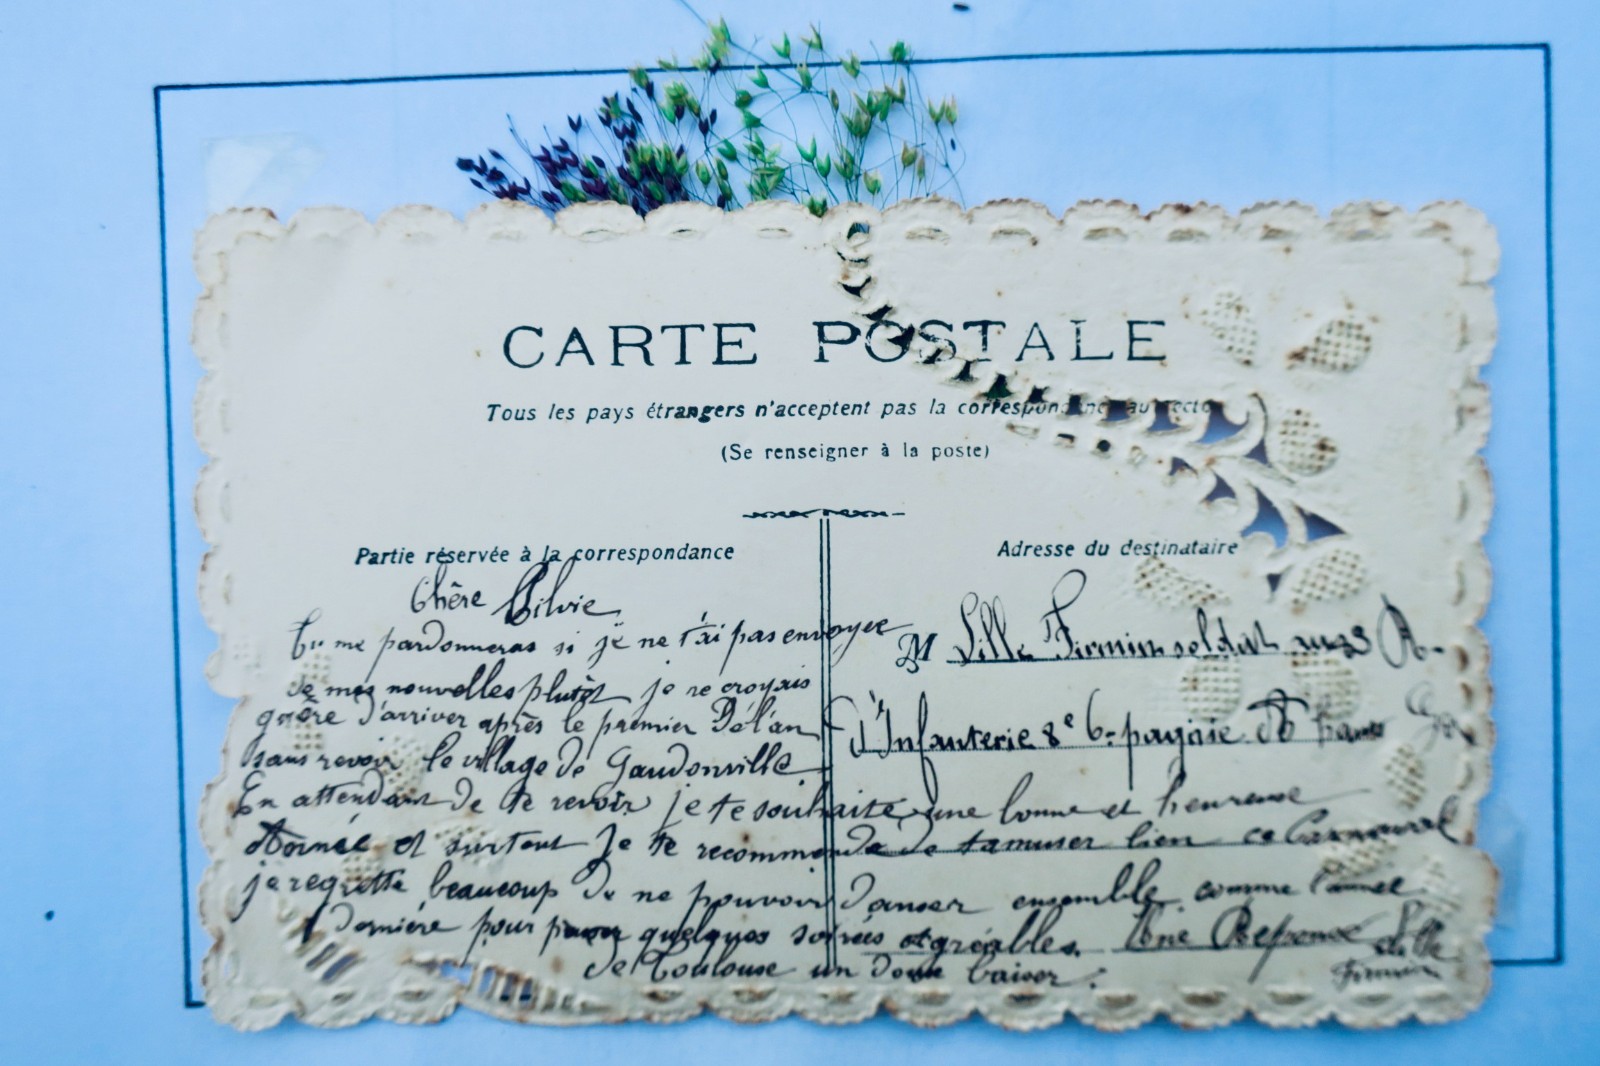 CARTE POSTALE
Tous les pays étrangers n'acceptent pas la correspondance au recto
(Se renseigner à la poste)
Partie réservée à la correspondance
Chère Silvie
Tu me pardonneras si je ne t'ai pas envoyer
de mes nouvelles plutôt je ne croyais
guère d'arriver après le premier De l'an
sans revoir le village de Gaudonville
En attendant de te revoir je te souhaite une bonne et heureuse
Année et surtout Je te recommende de tamuser bien ce Carnaval
je regrette beaucoup de ne pouvoir danser ensemble comme l'année
Dernière pour passer quelques soirées agréables. Une Reponse
de Toulouse un doux baiser.
Lille
Firmin
Adresse du destinataire
M Lille Firmin soldat au
d'Infanterie 8e